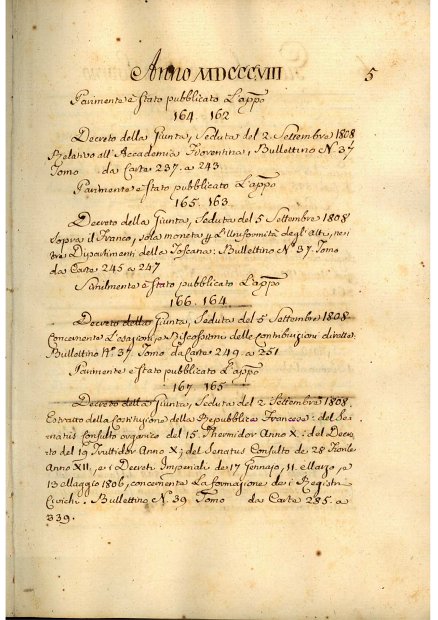 Anno MDCCCVIII 5
Parimente è stato pubblicato L'appo
164. 162
Decreto della Giunta, Seduta del 2. Settembre 1808
Relativo all'Accademia Fiorentina, Bullettino N. 37
Tomo da Carte 237. a 243
Parimente è stato pubblicato L'appo
165. 163.
Decreto della Giunta, Seduta del 5 Settembre 1808
Sopra il Franco, sola moneta L'Uniformità degl'Atti, nei
tre Dipartimenti della Toscana: Bullettino N. 37. Tomo
da Carte 245 a 247
Similmente è stato pubblicato L'appo
166. 164
Decreto della Giunta, Seduta del 5 Settembre 1808
Concernente L'esazioni, e Riscossioni delle contribuzioni dirette:
Bullettino N. 37 Tomo da Carte 249 a 251
Parimente è stato pubblicato L'appo
167. 165
Decreto della Giunta, Seduta del 2 Settembre 1808.
Estratto della Costituzione della Repubblica Francese: del Se=
natus Consulto organico del 15 Thermidor Anno X: del Decre=
to del 19 Fruttidor Anno X; del Senatus Consulto de 28 Fiorile
Anno XII, e i Decreti Imperiali de 17 Gennajo, 11. Marzo, e
13 Maggio 1806, concernente La formazione de i Registri
Civichi. Bullettino N. 39 Tomo da Carte 285. a
339.